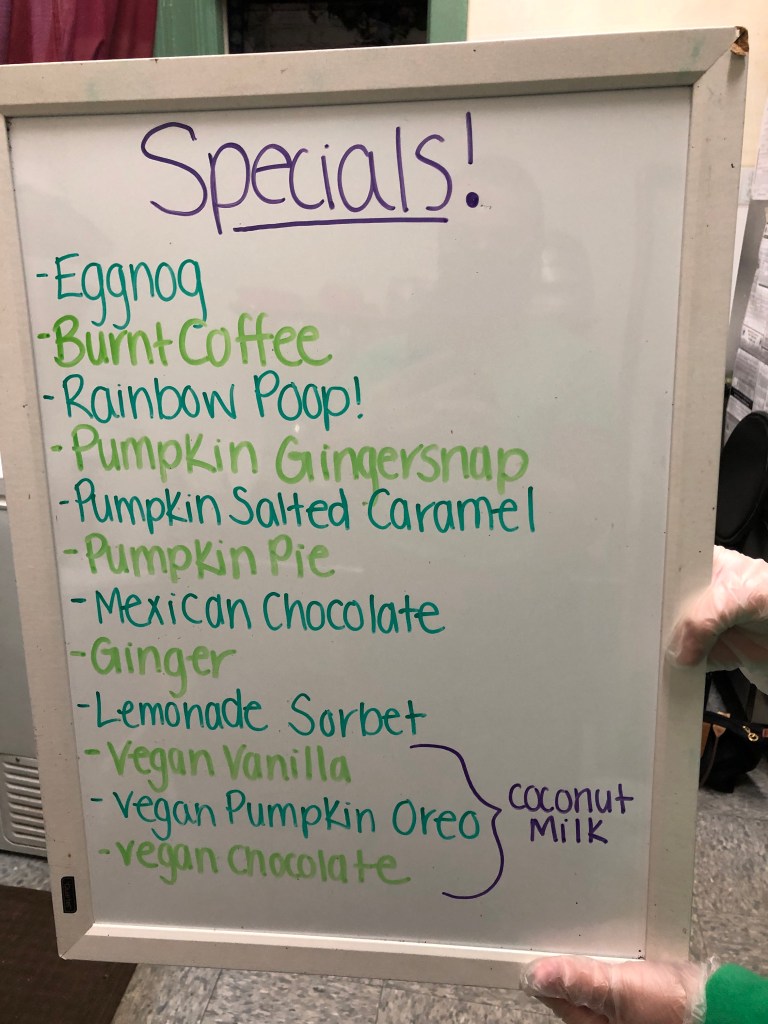 Specials!
-Eggnog
-Burnt Coffee
-Rainbow Poop!
-Pumpkin Gingersnap
-Pumpkin Salted Caramel
-Pumpkin Pie
-Mexican Chocolate
-Ginger
-Lemonade Sorbet
-Vegan Vanilla
-Vegan Pumpkin Oreo
-Vegan Chocolate
Coconut
Milk